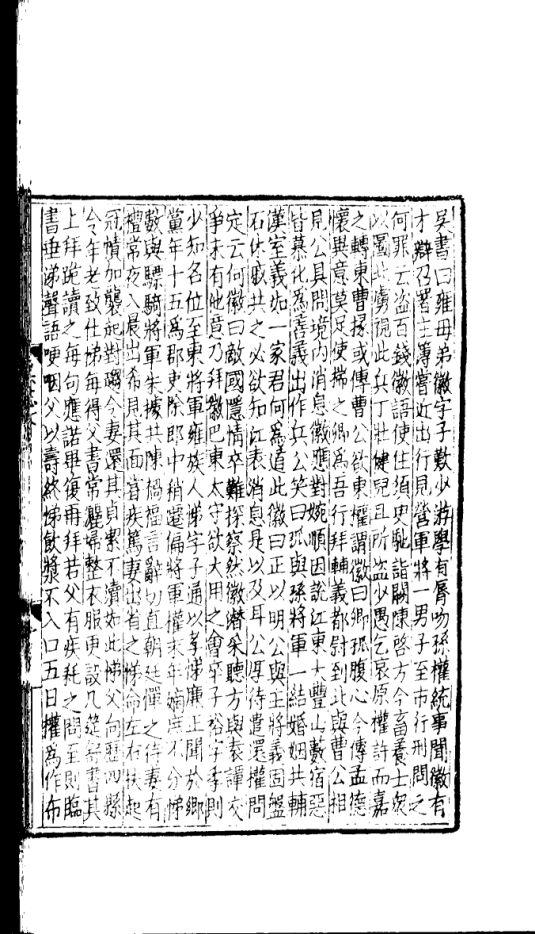 吳書曰雍母弟徽字子歎少游學有脣吻孫權統事聞徽有
才辯召署主簿嘗近出行見營軍將一男子至市行刑問之
何罪云盜百錢徽語使住須臾馳詣闕陳啓方今畜養士衆
以圖北虜視此兵丁壯健兒且所盜少愚乞哀原權許而嘉
之轉東曹掾或傳曹公欲東權謂徽曰卿孤腹心今傳孟德
懷異意莫足使揣之卿爲吾行拜輔義都尉到北與曹公相
見公具問境內消息徽應對婉順因說江東大豐山藪宿惡
皆慕化爲善義出作兵公笑曰孤與孫將軍一結婚姻共輔
漢室義如一家君何爲道此徽曰正以明公與主將義固盤
石休戚共之必欲知江表消息是以及耳公厚待遣還權問
定云何徽曰敵國隱情卒難探察然徽潛采聽方與袁譚交
爭未有他意乃拜徽巴東太守欲大用之會卒子裕字季則
少知名位至東將軍雍族人悌字子通以孝悌廉上聞於鄉
黨年十五爲郡吏除郎中稍遷偏將軍權末年嫡庶不分悌
數與驃騎將軍朱據共陳禍福言辭切直朝廷憚之待妻有
禮常夜入晨出希見其面嘗疾篤妻出省之悌命左右扶起
冠幘加襲起對趣令妻還其貞潔不瀆如此悌父向歷四縣
令年老致仕悌每得父書常灑掃整衣服更設几筵舒書其
上拜跪讀之每句應諾畢復再拜若父有疾耗之問至則臨
書垂涕聲語哽咽父以壽終悌飲漿不入口五日權爲作布